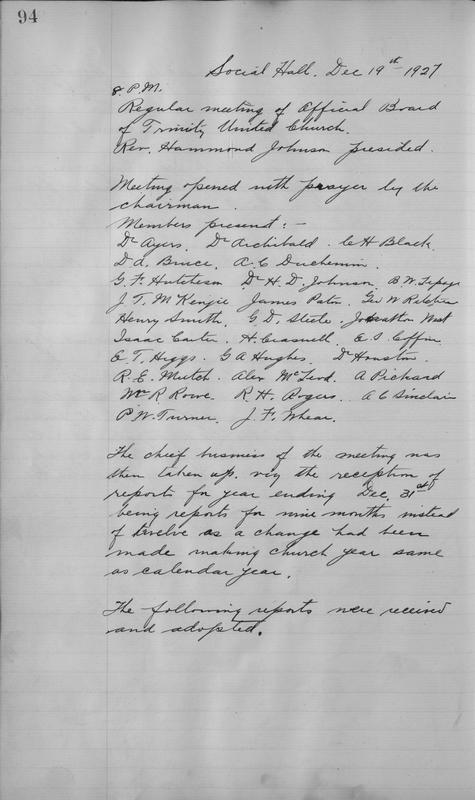 94
Social Hall. Dec 19th 1927
8 P.M.
Regular meeting of Official Board
of Trinity United Church.
Rev. Hammond Johnson presided.
Meeting opened with prayer by the
chairman.
Members present :-
Dr Ayers. Dr Archibald. C H Black.
D. A. Bruce. A. E Duchemin.
G. F. Hutcheson Dr H. D. Johnson. B. W. Lepage
J. T. McKenzie James Paton. Geo W
Henry Smith. G. D. Steele. Jonathan West
Isaac Carter. H. E. S. Coffin.
E T. Higgs. G A Hughes. Dr Houston.
R. E. Mutch. Alex McLeod. A Pickard
Wm R Rowe. R H. Rogers. A C Sinclair
P. W. Turner. J. F. Whear.
The chief business of the meeting was
then taken up. viz the reception of
reports for year ending Dec, 31st
being reports for nine months instead
of twelve as a change had been
made making church year same
as calendar year.
The following reports were received
and adopted.